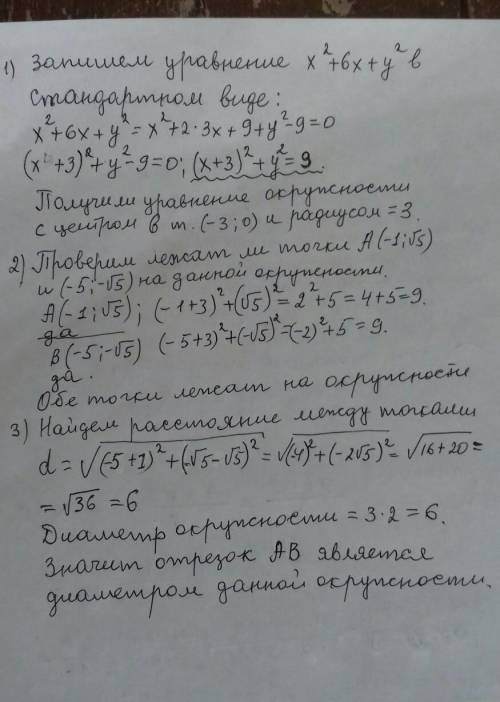 1) Запишем уравнение x²+6x+y² в
стандартном виде:
x²+6x+y² = x²+2·3x+9+y²-9=0
(x+3)²+y²-9=0; (x+3)²+y²=9.
Получили уравнение окружности
с центром в т. (-3;0) и радиусом =3.
2) Проверим лежат ли точки A(-1;√5)
и (-5;-√5) на данной окружности.
A(-1;√5); (-1+3)²+(√5)²=2²+5=4+5=9.
да
B(-5;-√5) (-5+3)²+(-√5)²=(-2)²+5=9.
да.
Обе точки лежат на окружности
3) Найдем расстояние между точками
d=√(-5+1)²+(-√5-√5)²=√(4)²+(-2√5)²=√16+20=
=√36=6
Диаметр окружности =3·2=6.
Значит отрезок AB является
диаметром данной окружности.